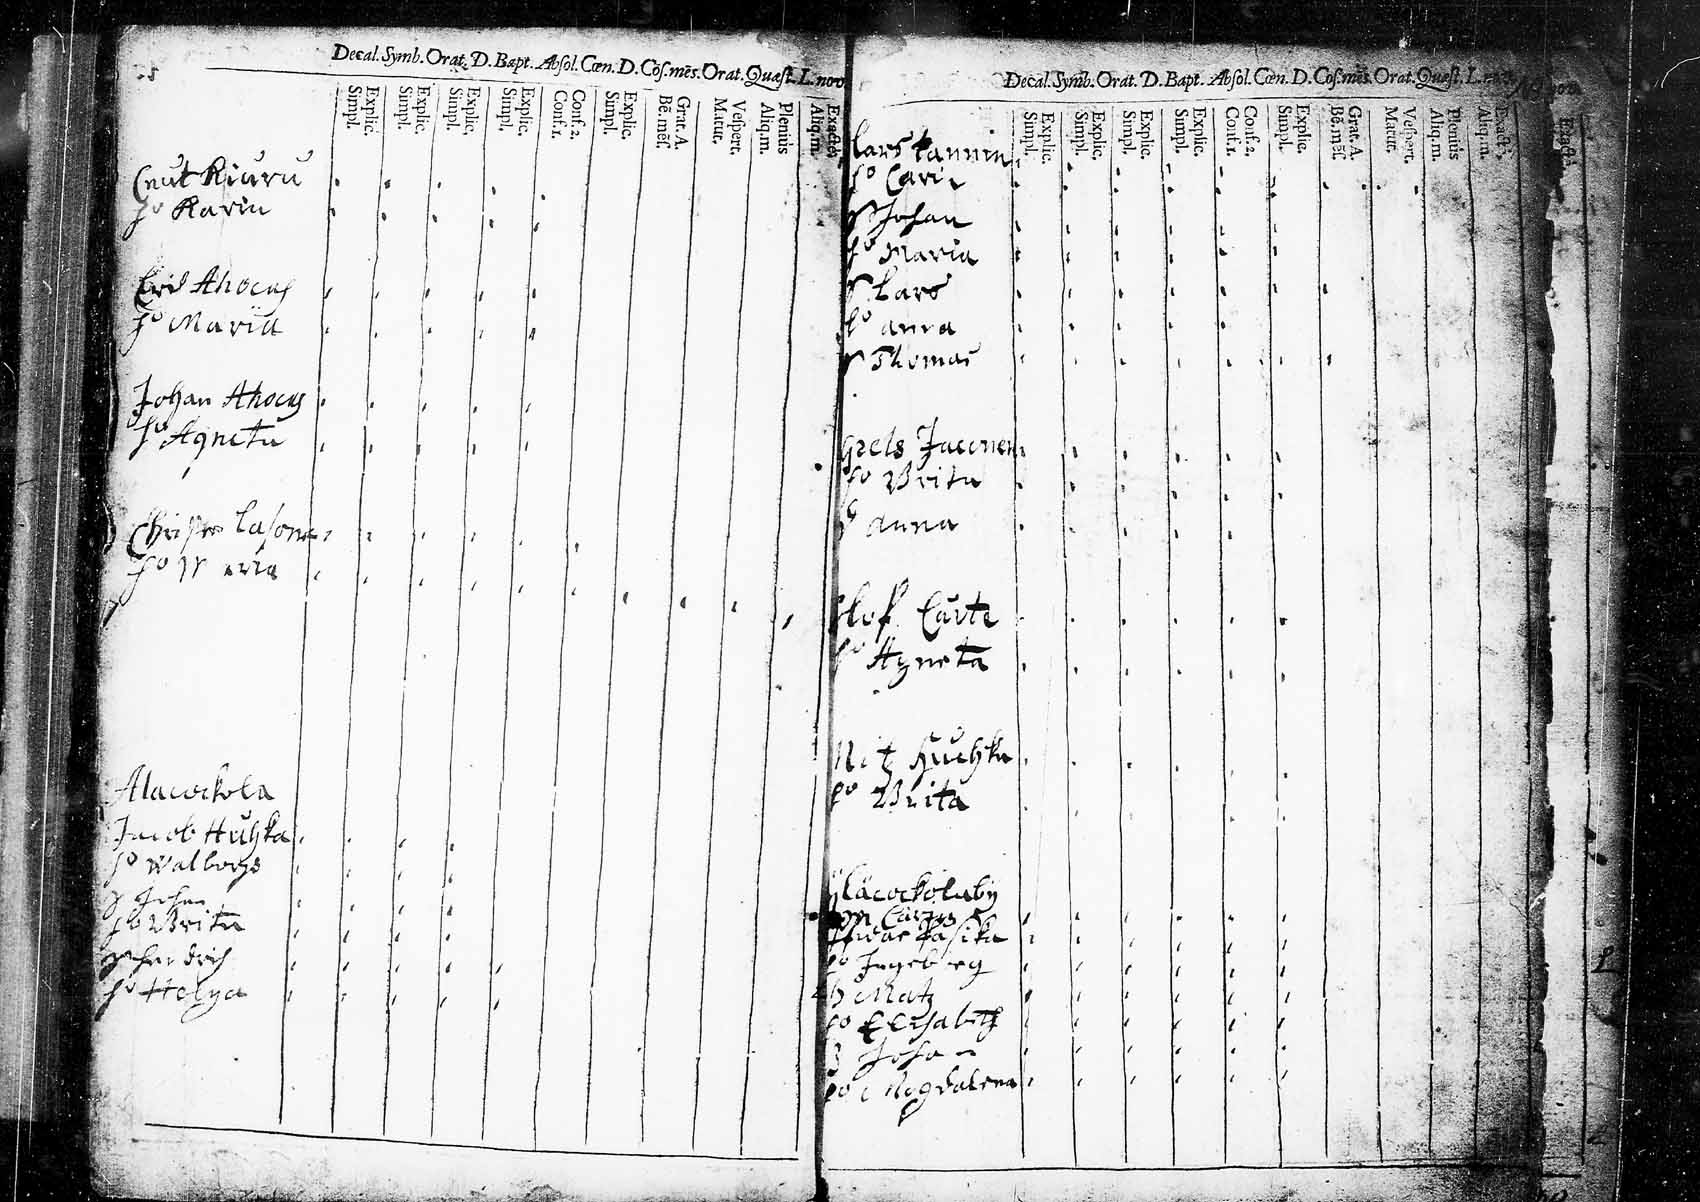 Decal. Symb. Orat. D. Bapt. Absol. Cœn. D. Cos. mēs. Orat. Quæst. L. nov
Explic. Simpl.
Explic. Simpl.
Explic. Simpl.
Explic. Simpl.
Conf. 2. Conf. 1.
Explic. Simpl.
Grat. A. Bē. mēs.
Vespert. Matut.
Plenius Aliq. m.
Exactè. Aliq. m.
Cnut Kiuru
ho Karin
Erich Ahocas
ho Maria
Johan Ahocas
ho Agneta
Christer Lasone
ho Maria
Alacockola
Jacob Huhka
ho Walborgh
Johan
ho Brita
Hendrich
ho Helga
Decal. Symb. Orat. D. Bapt. Absol. Cœn. D. Cos. mēs. Orat. Quæst. L.
Explic. Simpl.
Explic. Simpl.
Explic. Simpl.
Explic. Simpl.
Conf. 2. Conf. 1.
Explic. Simpl.
Grat. A. Bē. mēs.
Vespert. Matut.
Plenius Aliq. m.
Exactè. Aliq. m.
Exactè
Lars Tannin
ho Carin
Johan
ho Maria
Lars
ho anna
Thomas
Grels Jaconen
ho Brita
anna
Olof Curte
ho Agneta
Nitz Huchka
ho Brita
Yläcockolaby
Iwar Kasika
ho Ingeborg
Matz
ho Elisabeth
Johan
ho Magdalena